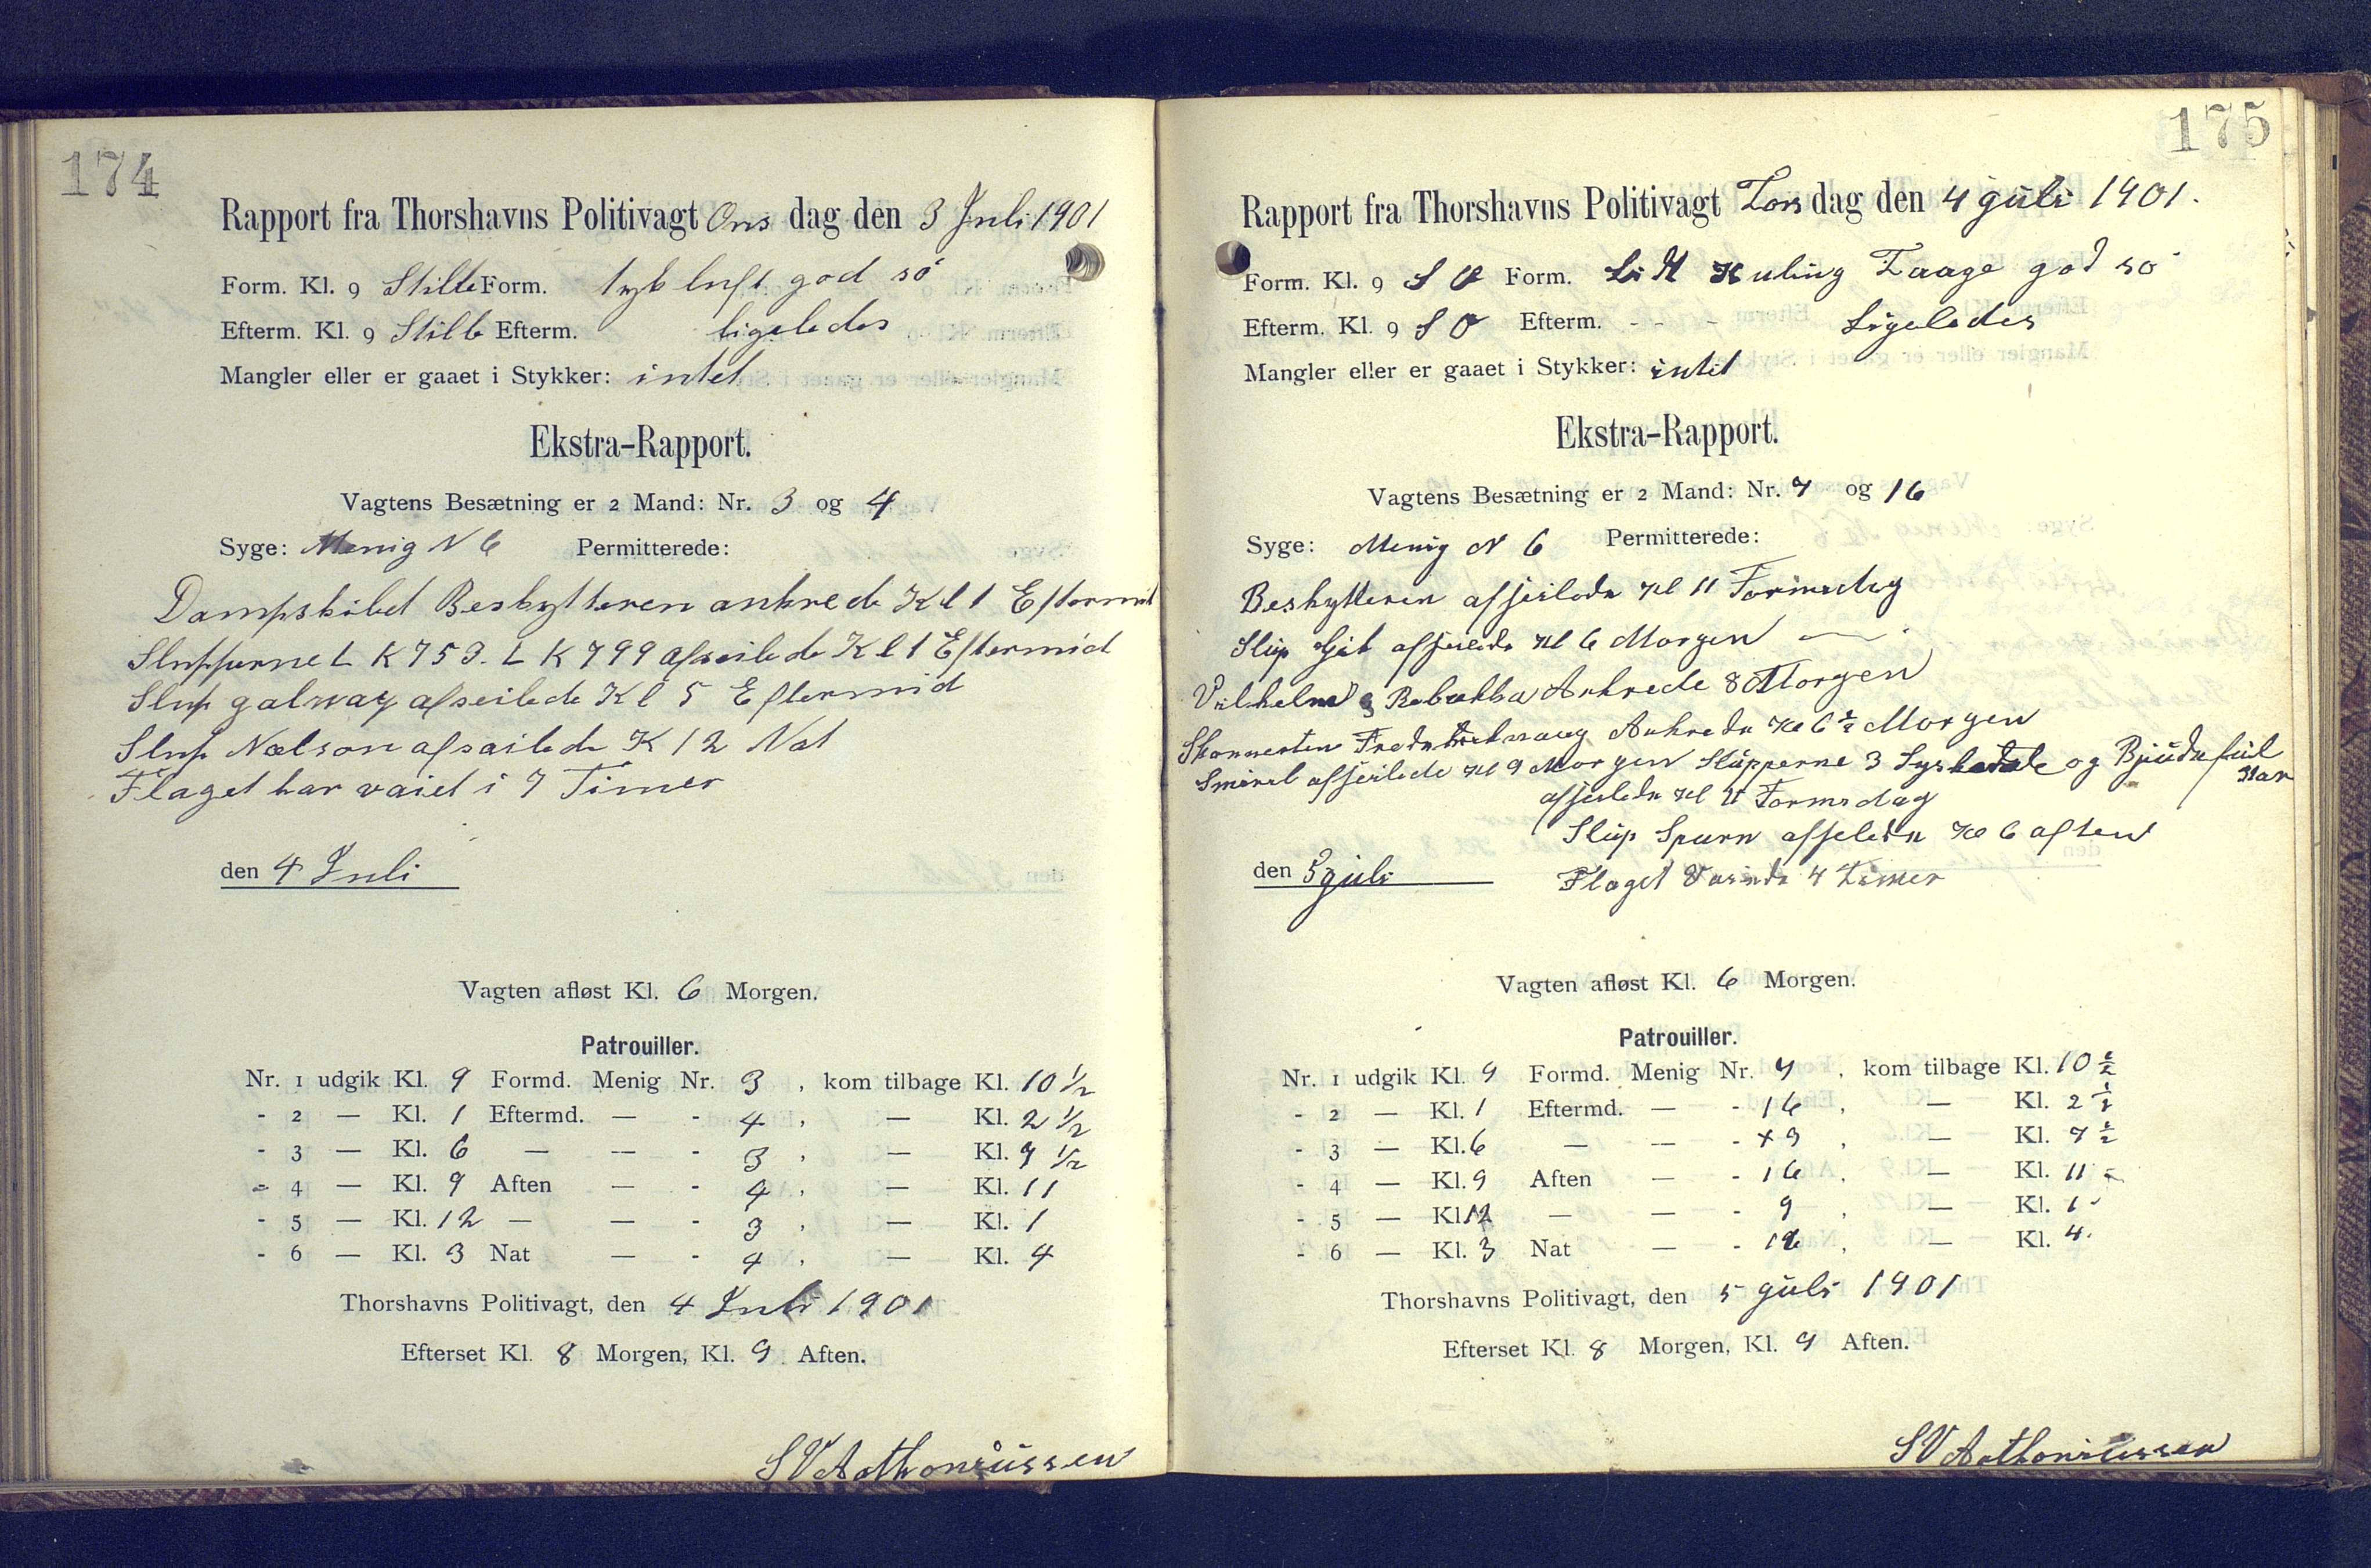 174
Rapport fra Thorshavns Politivagt Ons dag den 3 Juli 1901
Form. Kl. 9 Stille Form. tyk luft god sö
Efterm. Kl. 9 Stille Efterm. ligeledes
Mangler eller er gaaet i Stykker: intet
Ekstra-Rapport.
Vagtens Besætning er 2 Mand: Nr. 3 og 4
Syge: Menig N 6 Permitterede:
Dampskibet Beskytteren ankrede Kl 1 Eftermid
Slupperne L K 753. L K 799 afseilede Kl 1 Eftermid
Slup galway afseilede Kl 5 Eftermid
Slup Nælson afsailede K 12 Nat
Flaget har vaiet i 7 Timer
den 4 Juli
Vagten afløst Kl. 6 Morgen.
Patrouiller.
Nr. 1 udgik Kl. 9 Formd. Menig Nr. 3, kom tilbage Kl. 10 1/2
- 2 — Kl. 1 Eftermd. — - 4, — Kl. 2 1/2
- 3 — Kl. 6 — — - 3, — Kl. 7 1/2
- 4 — Kl. 9 Aften — - 4, — Kl. 11
- 5 — Kl. 12 — — - 3, — Kl. 1
- 6 — Kl. 3 Nat — - 4, — Kl. 4
Thorshavns Politivagt, den 4 Juli 1901
Efterset Kl. 8 Morgen, Kl. 9 Aften.
S V Aathoniussen
175
Rapport fra Thorshavns Politivagt Tors dag den 4 juli 1901.
Form. Kl. 9 S O Form. Lit Kuling Taage god sö
Efterm. Kl. 9 S O Efterm. - - - Ligeledes
Mangler eller er gaaet i Stykker: intet
Ekstra-Rapport.
Vagtens Besætning er 2 Mand: Nr. 7 og 16
Syge: Menig N 6 Permitterede:
Beskytteren afseilede Kl 11 Formidag
Slup afseilede Kl 6 Morgen
Vilhelm Ankrede 8 Morgen
Skonnerten Ankrede Kl 6 1/2 Morgen
Smiril afseilede Kl 9 Morgen Slupperne 3 Syskedale og
Star
afseilede Kl 11 Formidag
Slup Spurn afseilede Kl 6 aften
Flaget Vaiede 4 Timer
den 5 juli
Vagten afløst Kl. 6 Morgen.
Patrouiller.
Nr. 1 udgik Kl. 9 Formd. Menig Nr. 7, kom tilbage Kl. 10 1/2
- 2 — Kl. 1 Eftermd. — - 16, — Kl. 2 1/2
- 3 — Kl. 6 — — - 9, — Kl. 7 1/2
- 4 — Kl. 9 Aften — - 16, — Kl. 11
- 5 — Kl. 12 — — - 9, — Kl. 1
- 6 — Kl. 3 Nat — - 16, — Kl. 4.
Thorshavns Politivagt, den 5 juli 1901
Efterset Kl. 8 Morgen, Kl. 9 Aften.
S V Aathoniussen